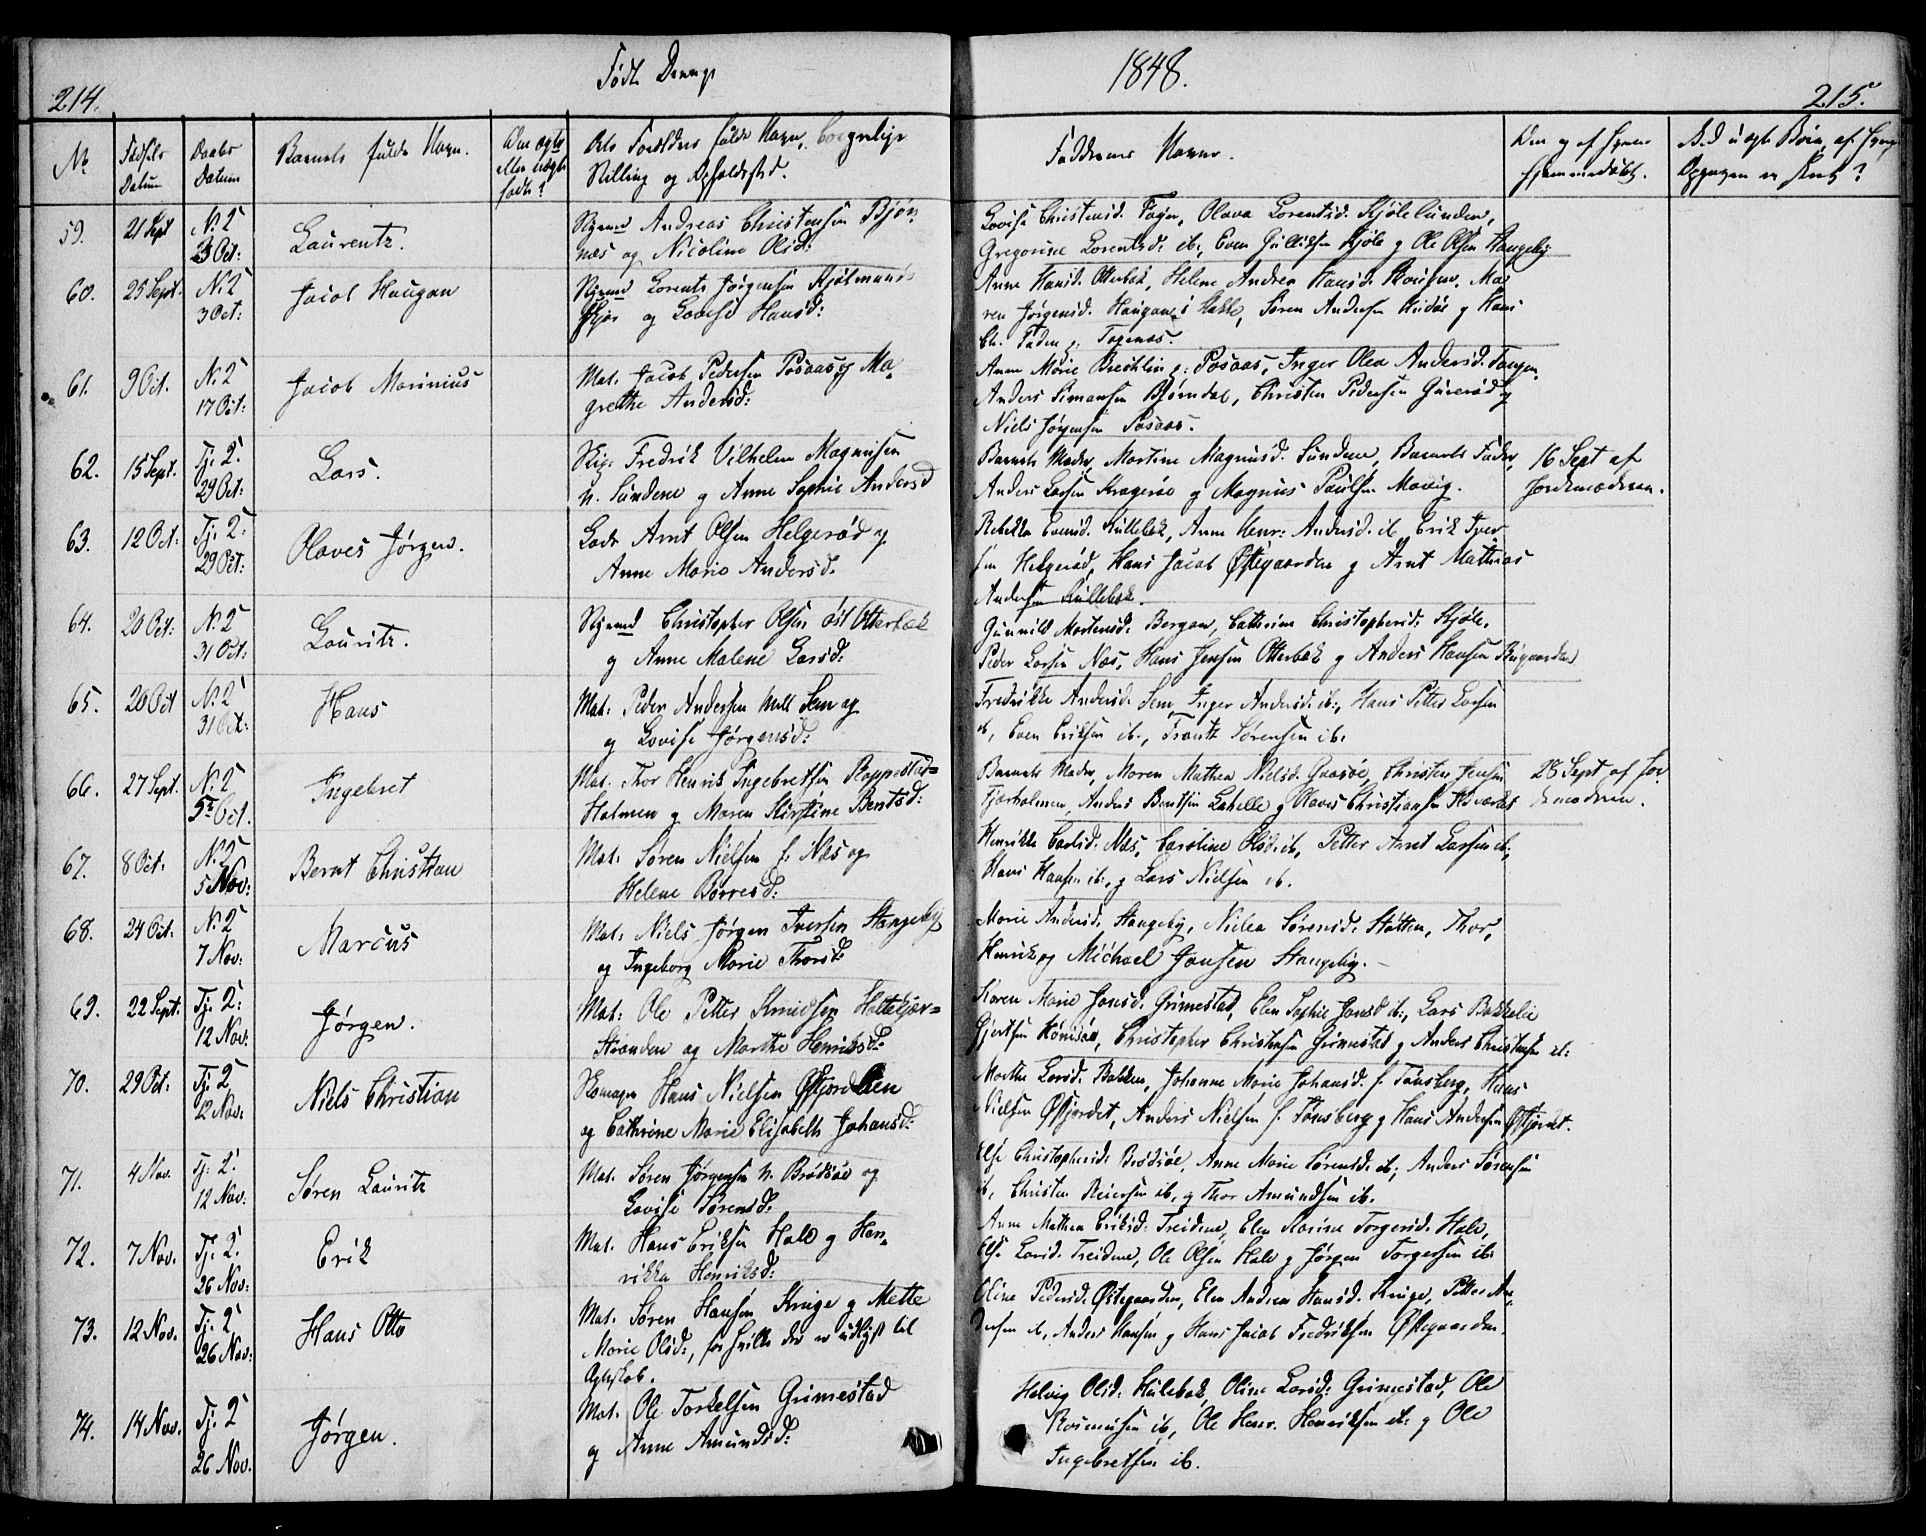 214.
Født Drenge
1848.
215.
No
Fødsels
Datum
Daabs
Datum
Barnets fulde Navn.
Om ægte
eller uægte
født?
Forældres fulde Navn, borgerlige
Stilling og Opholdssted.
Faddernes Navne.
hjemmedøbt.
59.
21 Sept
N. 2
3 Oct:
Laurentz.
Andreas Christensen Bjøn
næs og Nicoline Olsd:
Lovise Christensd. Fogn, Olava Lorentsd. Kjølelunden,
Gregorine Lorentsd: ib:, Even Gulliksen Kjøle g Ole Olsen Stangeby
60.
25 Sept.
N. 2
3 Oct:
Jacob Haugan
Lorents Jørgensen
og Lovise Hansd:
Anne Hansd. Otterbek, Helene Andrea Hansd.
ren Jørgensd. Haugan i Søren Andersen g Hans
61.
9 Oct.
N. 2
17 Oct:
Jacob Marinius
Mat. Jacob Pedersen Posaas og Ma,
grethe Andersd:
Anne Marie Posaas, Inger Olea Andersd. Tangen,
Anders Simonsen Bjørndal, Christen Pedersen g
Niels Jørgensen Posaas.
62.
15 Sept.
Tj: 2.
29 Oct:
Lars.
Fredrik Vilhelm Magnusen
n. Sundene g Anne Sophie Andersd
Barnets Moder, Martine Magnusd. Sundene, Barnets Fader,
Anders Larsen Kragerøe g Magnus Paulsen
16 Sept af
Jordemoderen.
63.
12 Oct:
Tj. 2:
29 Oct:
Olaves Jørgen.
Arnt Olsen Helgerød g
Anne Marie Andersd.
Rebekka Evensd. Hullebek, Anne Henr: Andersd. ib, Erik Iver
sen Helgerød, Hans Jacob Østegaarden g Arnt Mathias
Andersen Hullebek.
64.
20 Oct:
N. 2
31 Oct:
Lauritz.
Christopher Olsen øst Otterbek
og Anne Malene Larsd:
Gunnild Mortensd: Bergan, Cathrine Christophersd: Kjøle,
Peder Larsen Næs, Hans Jensen Otterbek g Anders Hansen
65.
20 Oct
N. 2
31 Oct:
Hans
Mat: Peder Andersen Sem og
og Lovise Jørgensd:
Fredrikke Andersd. Sem, Inger Andersd. ib:, Hans Petter Larsen
ib, Even Eriksen ib., Frantz Sørensen ib.
66.
27 Sept.
N. 2
5te Oct.
Ingebret
Mat. Thor Henrik Ingebretsen Roppestad=
Holmen g Maren Kirstine Bentsd:
Barnets Moder, Maren Mathea Nielsd. Gaasøe, Christen Jensen
Fjærholmen, Anders Bentsen Labelle g Olaves Christiansen
28 Sept af Jor
demoderen.
67.
8 Oct:
N. 2
5 Nov:
Bernt Christian
Mat. Søren Nielsen f. Næs og
Helene Børresd:
Henrikke Carlsd. Næs, Caroline Olsd. ib, Petter Arnt Larsen ib,
Hans Hansen ib., g Lars Nielsen ib.
68.
24 Oct:
N. 2
7 Nov:
Marcus
Mat: Niels Jørgen Iversen Stangeby
og Ingeborg Marie Thorsd:
Marie Andersd. Stangeby, Nilea Sørensd. Holtan, Thor,
Henrik og Michael Jonsen Stangeby.
69.
22 Sept.
Tj. 2:
12 Nov:
Jørgen.
Mat: Ole Petter Knudsen Hottekjær=
Stranden og Marthe Henriksd:
Karen Marie Jonsd. Grimestad, Elen Sophie Jonsd ib:, Lars Bakkelie
Gjertsen Christopher Christensen Grimestad g Anders Christensen ib:
70.
29 Oct:
Tj. 2
12 Nov:
Niels Christian
Skomager Hans Nielsen Østjordben
og Cathrine Marie Elisabeth Johansd:
Marthe Larsd. Bakken, Johanne Marie Johansd. f. Tønsberg, Hans
Nielsen Østjordet, Anders Nielsen f. Tønsberg g Hans Andersen Østjordet.
71.
4 Nov.
Tj: 2.
12 Nov.
Søren Lauritz
Mat. Søren Jørgensen n. Brødsøe og
Lovise Sørensd:
Else Christophersd: Brødsøe, Anne Marie Sørensd: ib, Anders Sørensen
ib, Christen Reiersen ib, g Thor Amundsen ib.
72.
7 Nov.
Tj. 2.
26 Nov:
Erik
Mat. Hans Eriksen Hale g Hen,
rikka Henriksd:
Anne Mathea Eriksd: Treidene, Elen Karine Torgersd. Hale,
Else Larsd. Treidene, Ole Olsen Hale g Jørgen Torgersen ib.
73.
12 Nov.
Tj. 2
26 Nov:
Hans Otto
Mat. Søren Hansen Kruge g Mette
Marie Olsd:, for hvilke der er udlyst til
Ægteskab.
Oline Pedersd. Østegaarden, Elen Andrea Hansd. Kruge, Petter An,
dersen ib, Anders Hansen g Hans Jacob Fredriksen Østegaarden.
74.
14 Nov.
Tj. 2
26 Nov.
Jørgen.
Mat. Ole Torkelsen Grimestad
og Anne Amundsd:
Helvig Olsd: Hulebak, Oline Larsd. Grimestad, Ole
Rasmusen ib, Ole Henr. Henriksen ib: g Ole
Ingebretsen ib.